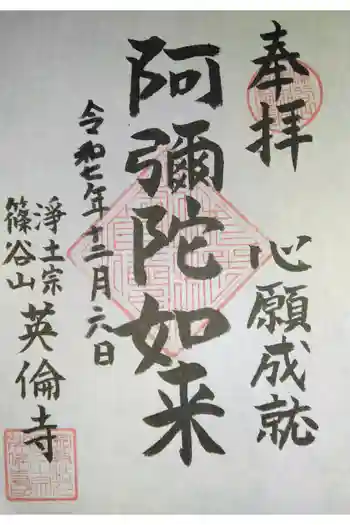 奉拝
心願成就
阿彌陀如来
令和七年十二月六日
浄土宗
篠谷山
英倫寺